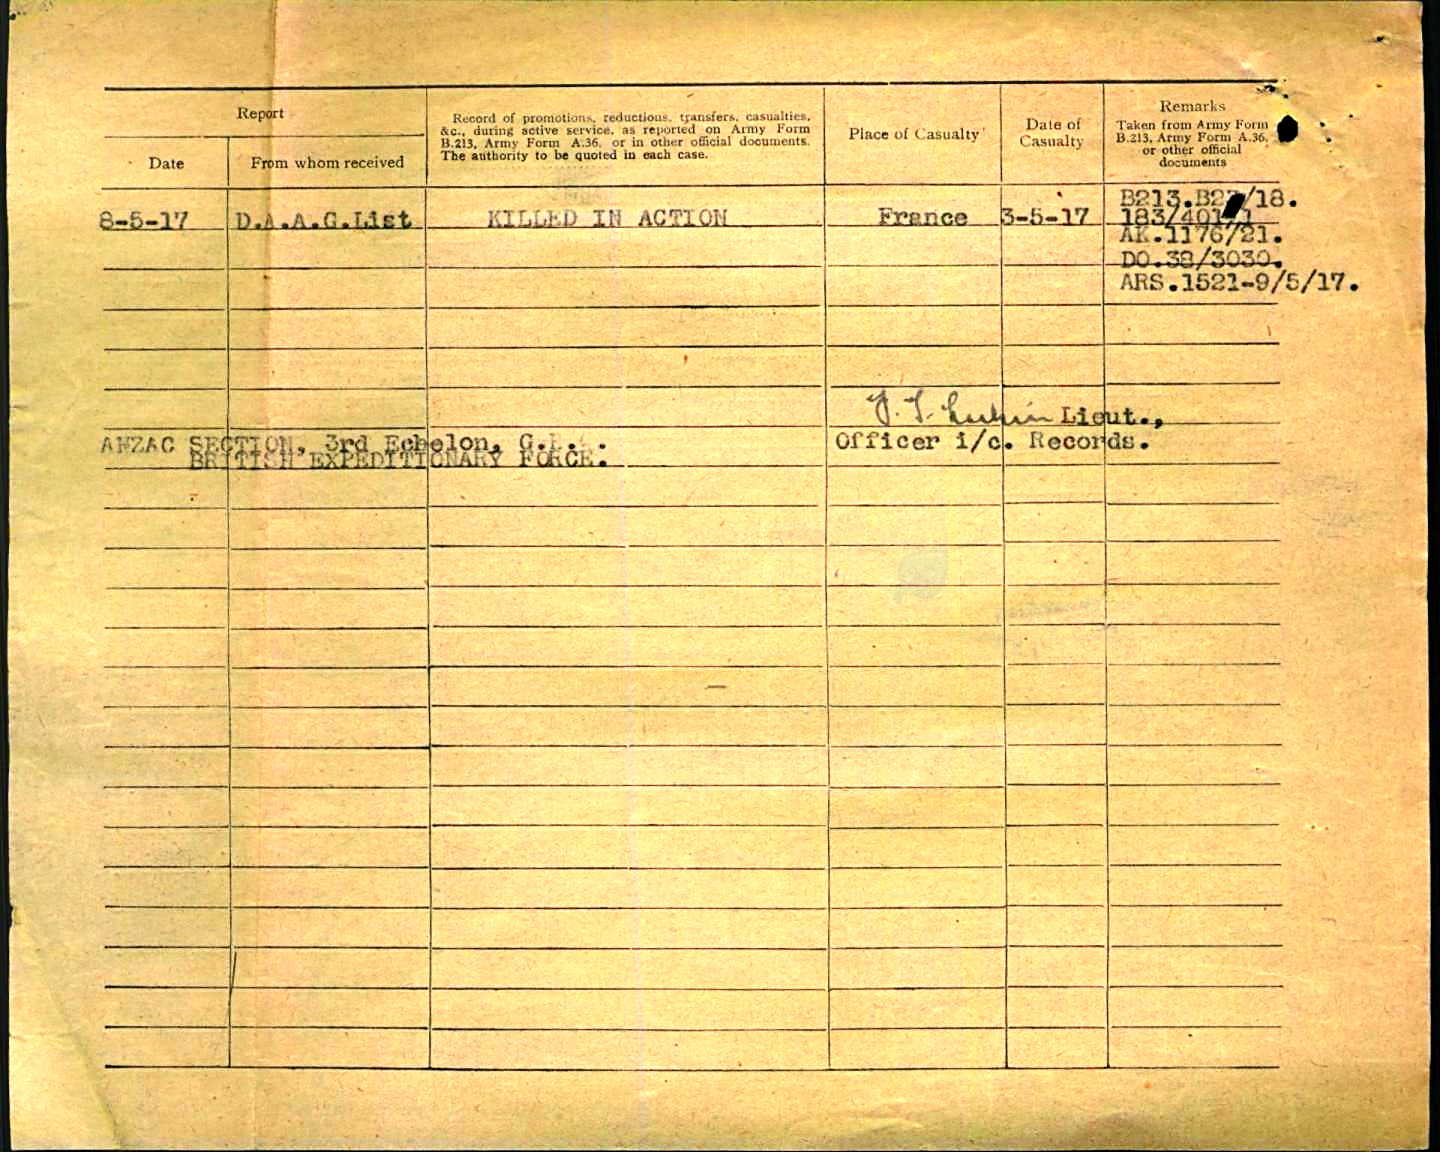 Report
Date
From whom received
Record of promotions, reductions, transfers, casualties,
&c., during active service, as reported on Army Form
B.213, Army Form A.36, or in other official documents.
The authority to be quoted in each case.
Place of Casualty
Date of
Casualty
Remarks
Taken from Army Form
B.213, Army Form A.36,
or other official
documents
8-5-17 D.A.A.G.List KILLED IN ACTION France 3-5-17
B213. /18.
AK.1176/21.
DO.38/3030.
ARS.1521-9/5/17.
Lieut.,
ANZAC SECTION, 3rd Echelon,
Officer i/c. Records.
BRITISH EXPEDITIONARY FORCE.